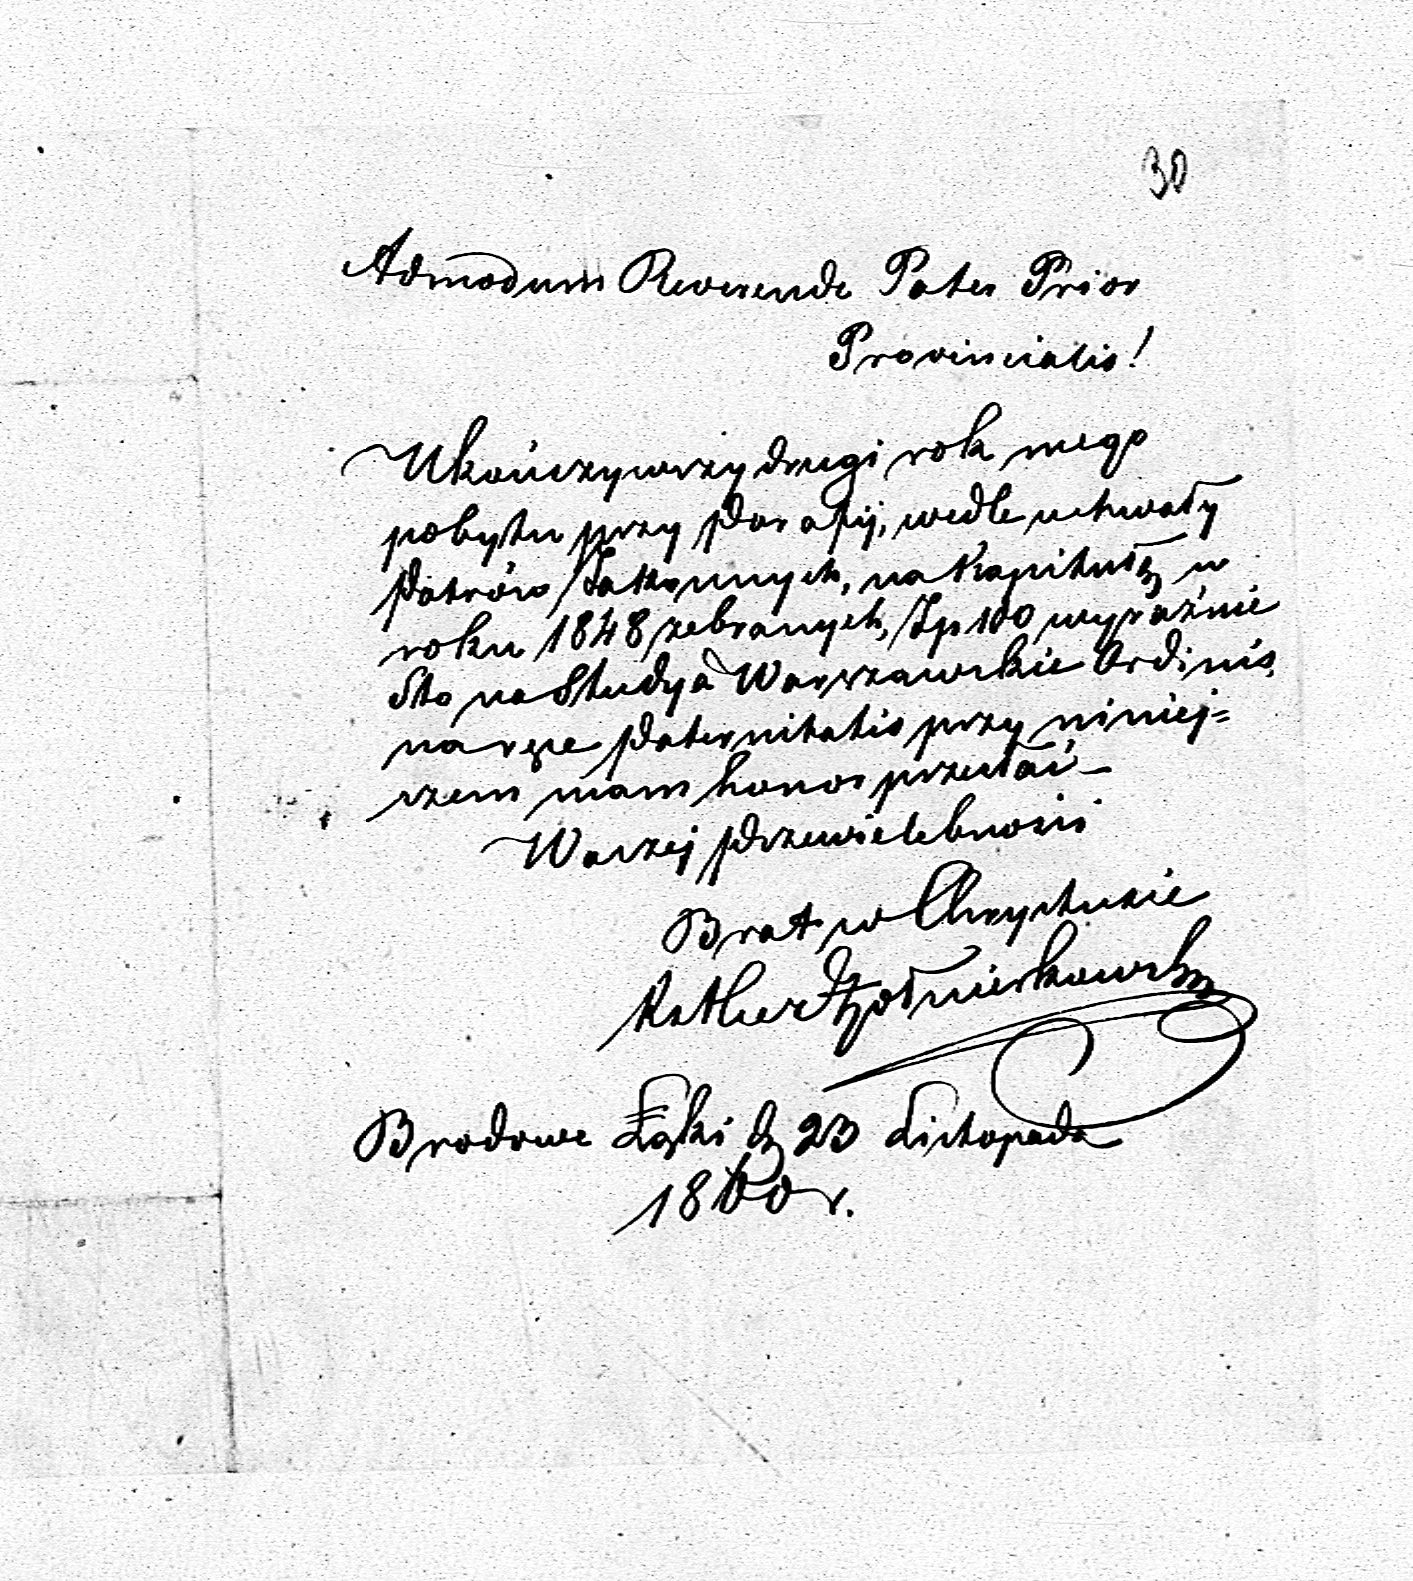 30
Admodum Reverende Pater Prior
Provincialis!
Ukończywszy drugi rok mego
pobytu przy Parafij, wedle uchwały
Patrów Zakonnych, na Kapitułę w
roku 1848 zebranych, Zp 100 wyraźnie
Sto na Studya Warszawskie Ordinis,
na ręce Paternitatis przy niniej=
szem mam honor przesłać –
Waszej Przewielebności
Brat w Chrystusie
Żołnierkowski
Brodowe Łąki d 23 Listopada
1860 r.